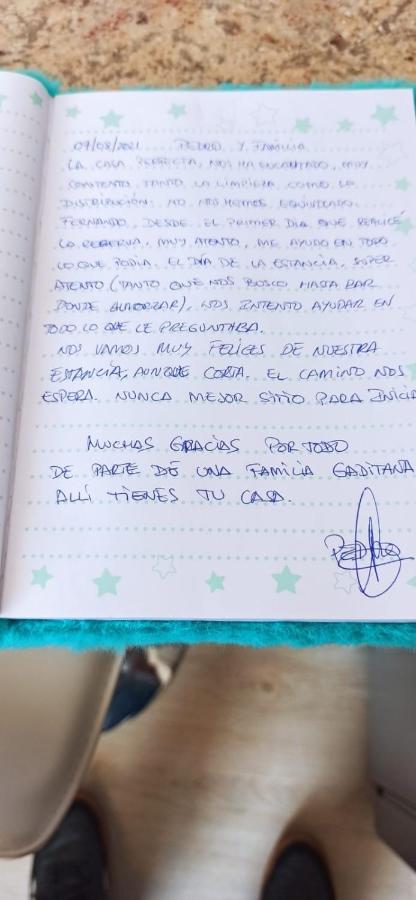 07/08/2021 PEDRO Y FAMILIA
LA CASA PERFECTA, NOS HA ENCANTADO, MUY
CONTENTO TANTO LA LIMPIEZA COMO LA
DISTRIBUCIÓN. NO NOS HEMOS EQUIVOCADO.
FERNANDO, DESDE EL PRIMER DIA QUE REALICÉ
LA RESERVA, MUY ATENTO, ME AYUDO EN TODO
LO QUE PODIA. EL DIA DE LA ESTANCIA, SUPER
ATENTO (TANTO QUE NOS BUSCO HASTA BAR
DONDE ALMORZAR), NOS INTENTO AYUDAR EN
TODO LO QUE LE PREGUNTABA.
NOS VAMOS MUY FELICES DE NUESTRA
ESTANCIA, AUNQUE CORTA. EL CAMINO NOS
ESPERA. NUNCA MEJOR SITIO PARA INICIA
MUCHAS GRACIAS POR TODO
DE PARTE DE UNA FAMILIA GADITANA
ALLÍ TIENES TU CASA.